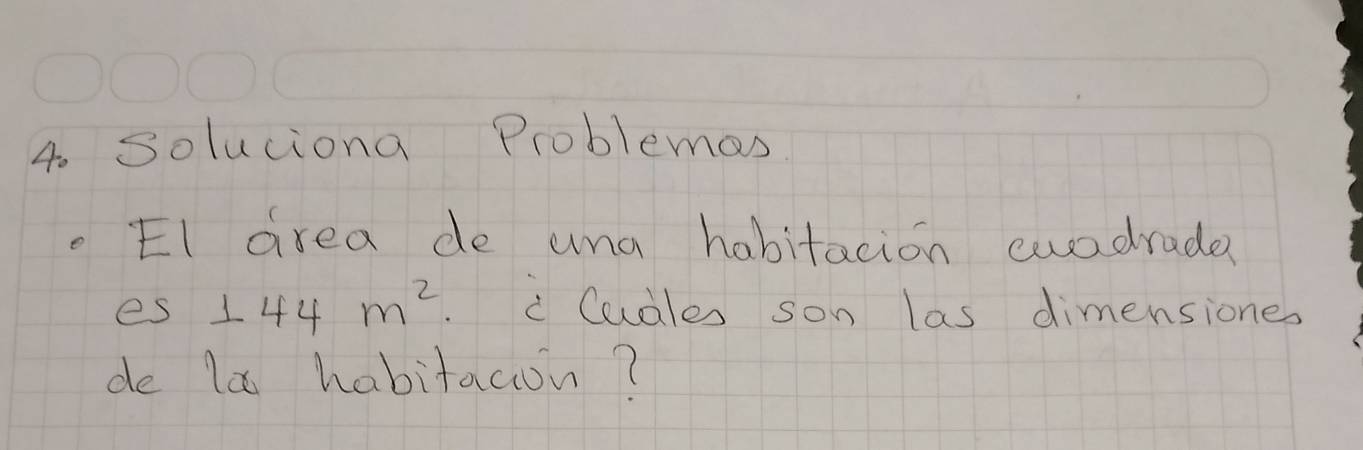 4. Soluciona Problemas
• El área de una habitación cuadrada
es 144 m². ¿Cuáles son las dimensiones
de la habitación?